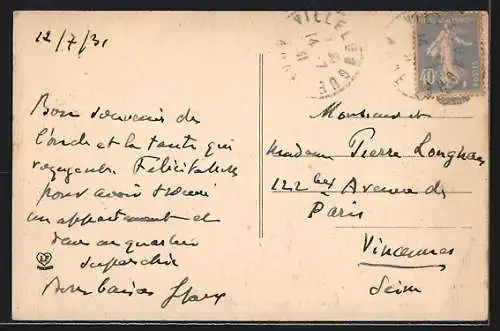 12/7/31
VILLELONGUE
14
40
Bon souvenir de
l'oncle et la tante qui
voyagent. Félicitations
pour avoir trouvé
un appartement et
dans un quartier
superchic
Bons baisers
Monsieur et
Madame Pierre
122 bis Avenue de
Paris
Vincennes
Seine